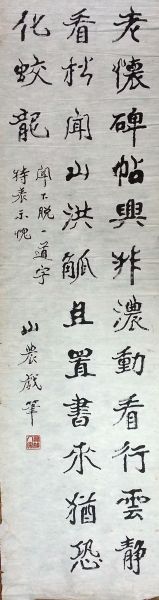 老懷碑帖興非濃動看行雲靜
看松聞山洪觚且置書來猶恐
化蛟龍
聞下脫一道字
特表示愧
山農戲筆